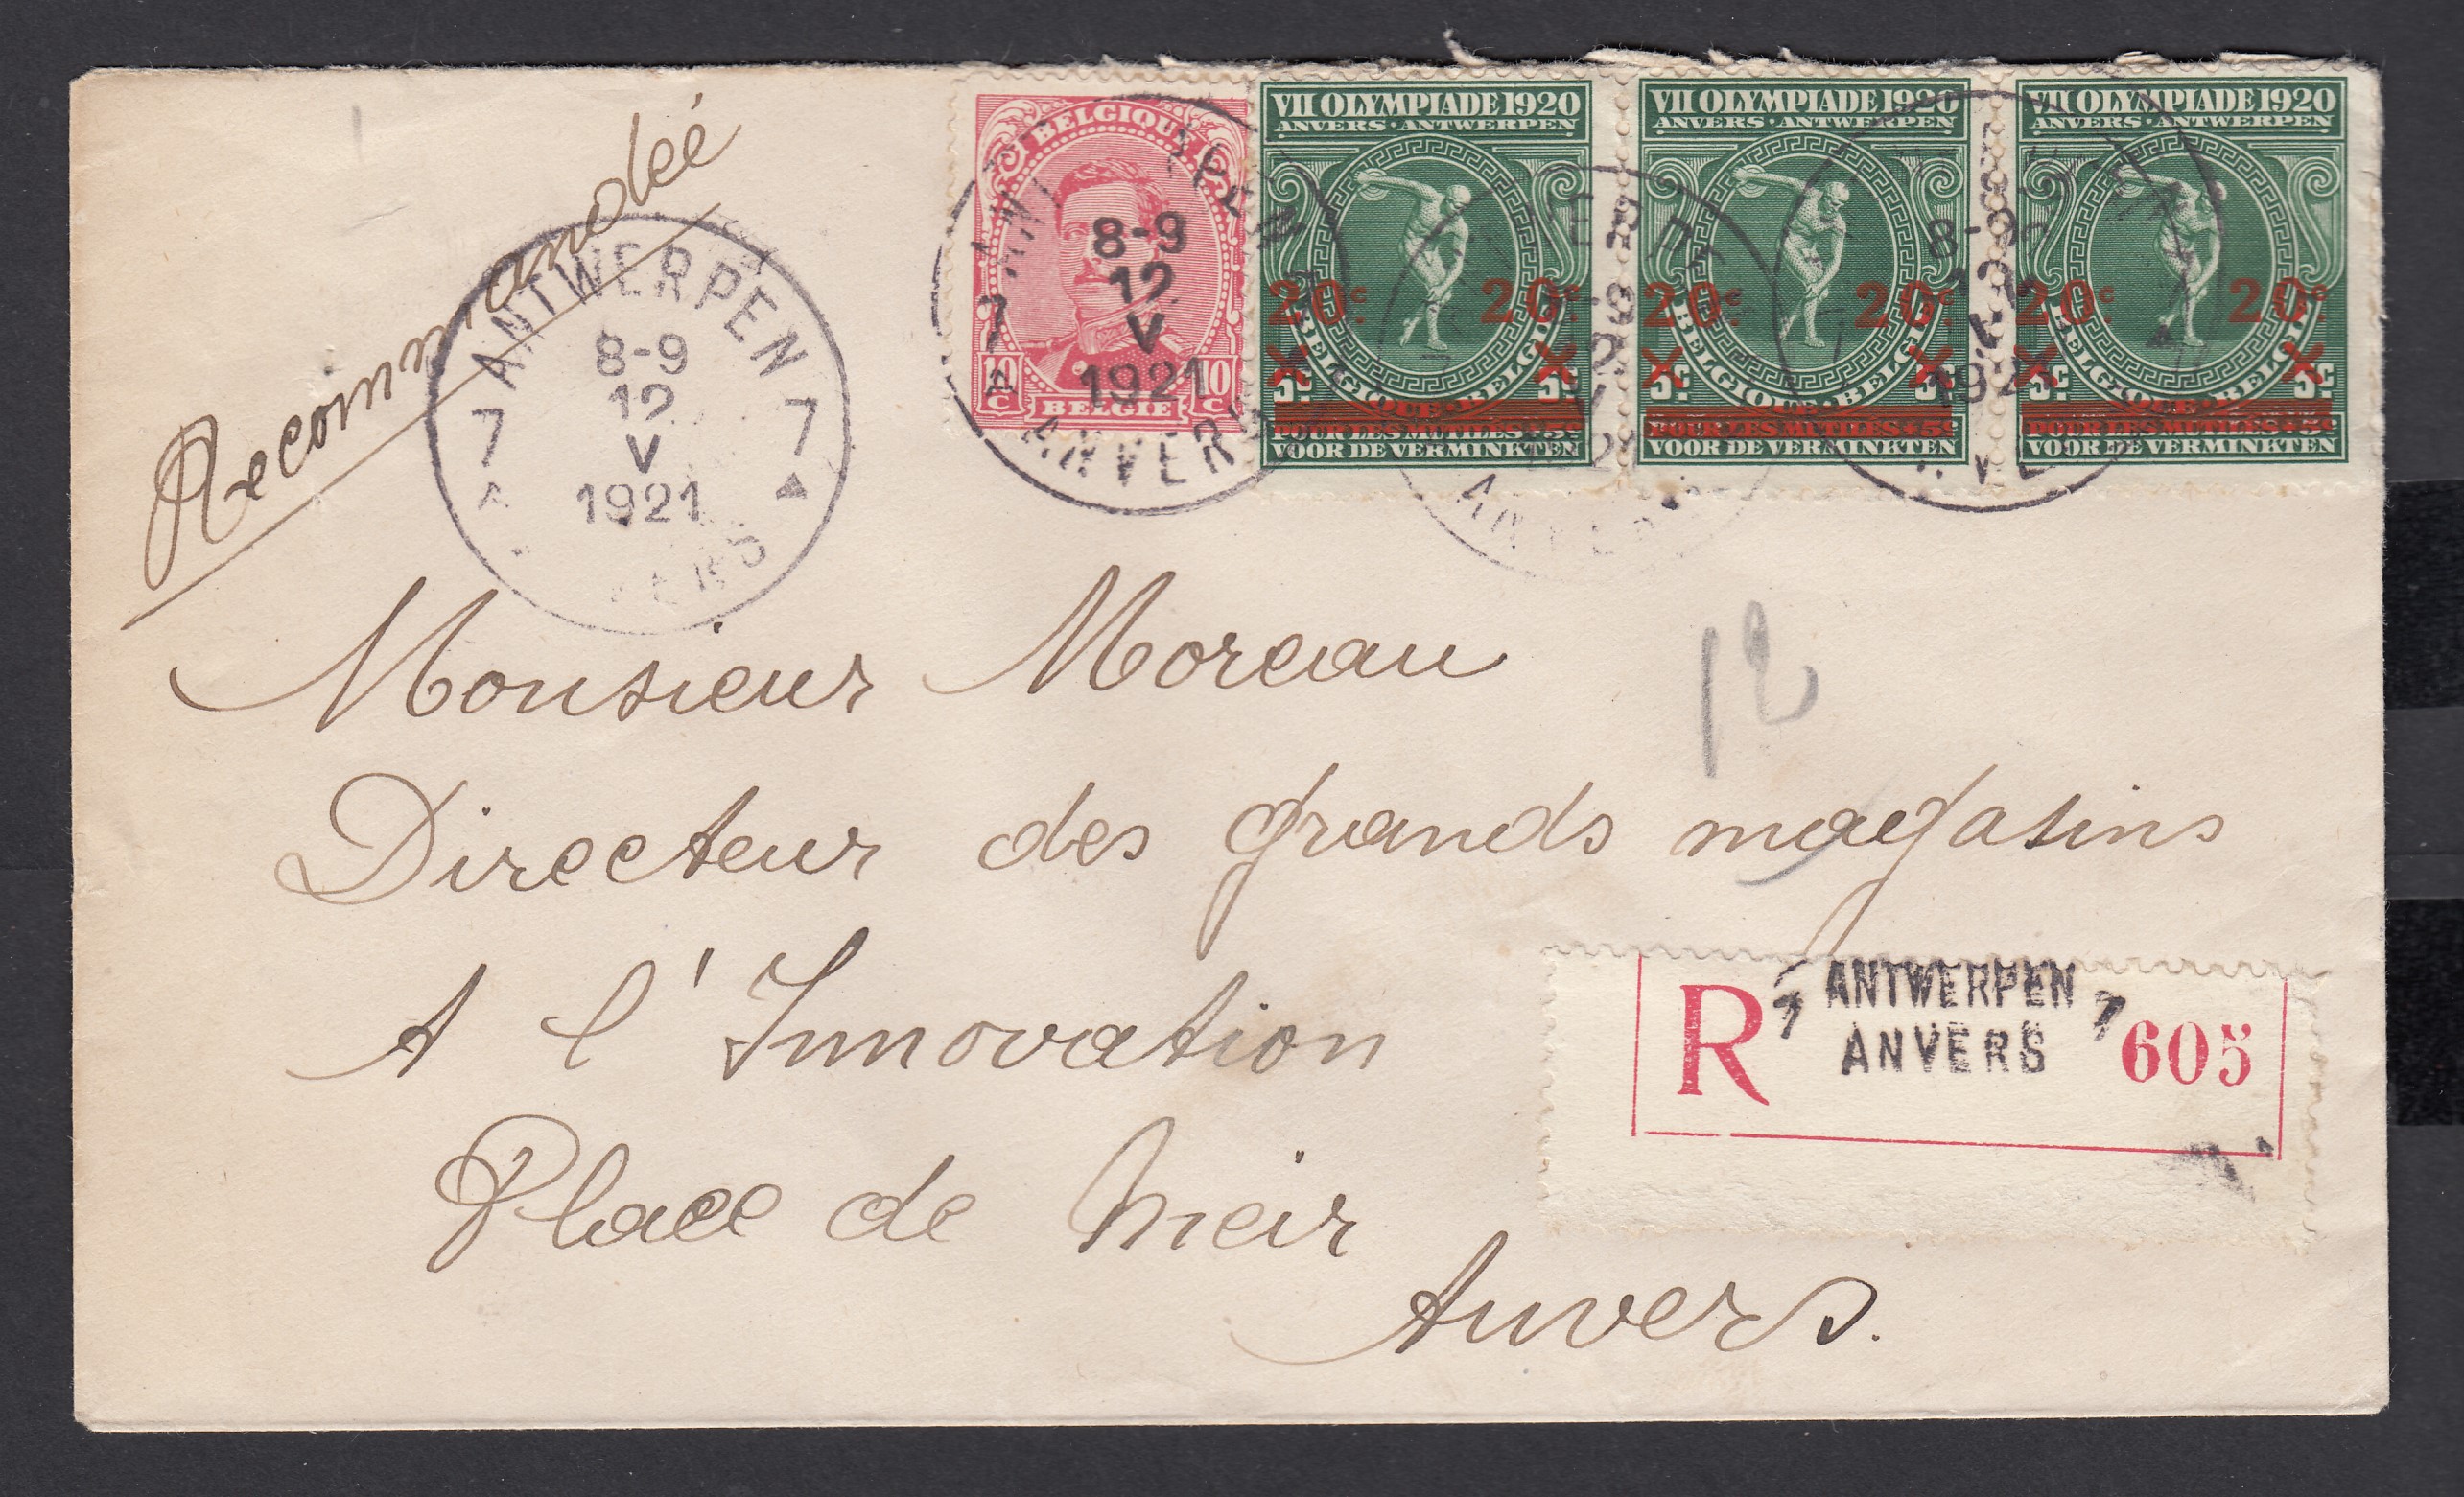 Recommandée
ANTWERPEN
8-9
12
V
1921
7 7
A
BELGIQUE
10 C BELGIE 10 C
ANTWERPEN
8-9
12
V
1921
7
A
ANVERS
VII OLYMPIADE 1920
ANVERS · ANTWERPEN
20c 20c
5c 5c
BELGIQUE · BELGIË
POUR LES MUTILÉS + 5c
VOOR DE VERMINKTEN
VII OLYMPIADE 1920
ANVERS · ANTWERPEN
20c 20c
5c 5c
BELGIQUE · BELGIË
POUR LES MUTILÉS + 5c
VOOR DE VERMINKTEN
VII OLYMPIADE 1920
ANVERS · ANTWERPEN
20c 20c
5c 5c
BELGIQUE · BELGIË
POUR LES MUTILÉS + 5c
VOOR DE VERMINKTEN
8-9
12
V
1921
12
Monsieur Moreau
Directeur des grands magasins
A l'Innovation
Place de Meir
Anvers.
R 7 ANTWERPEN 7 605
ANVERS